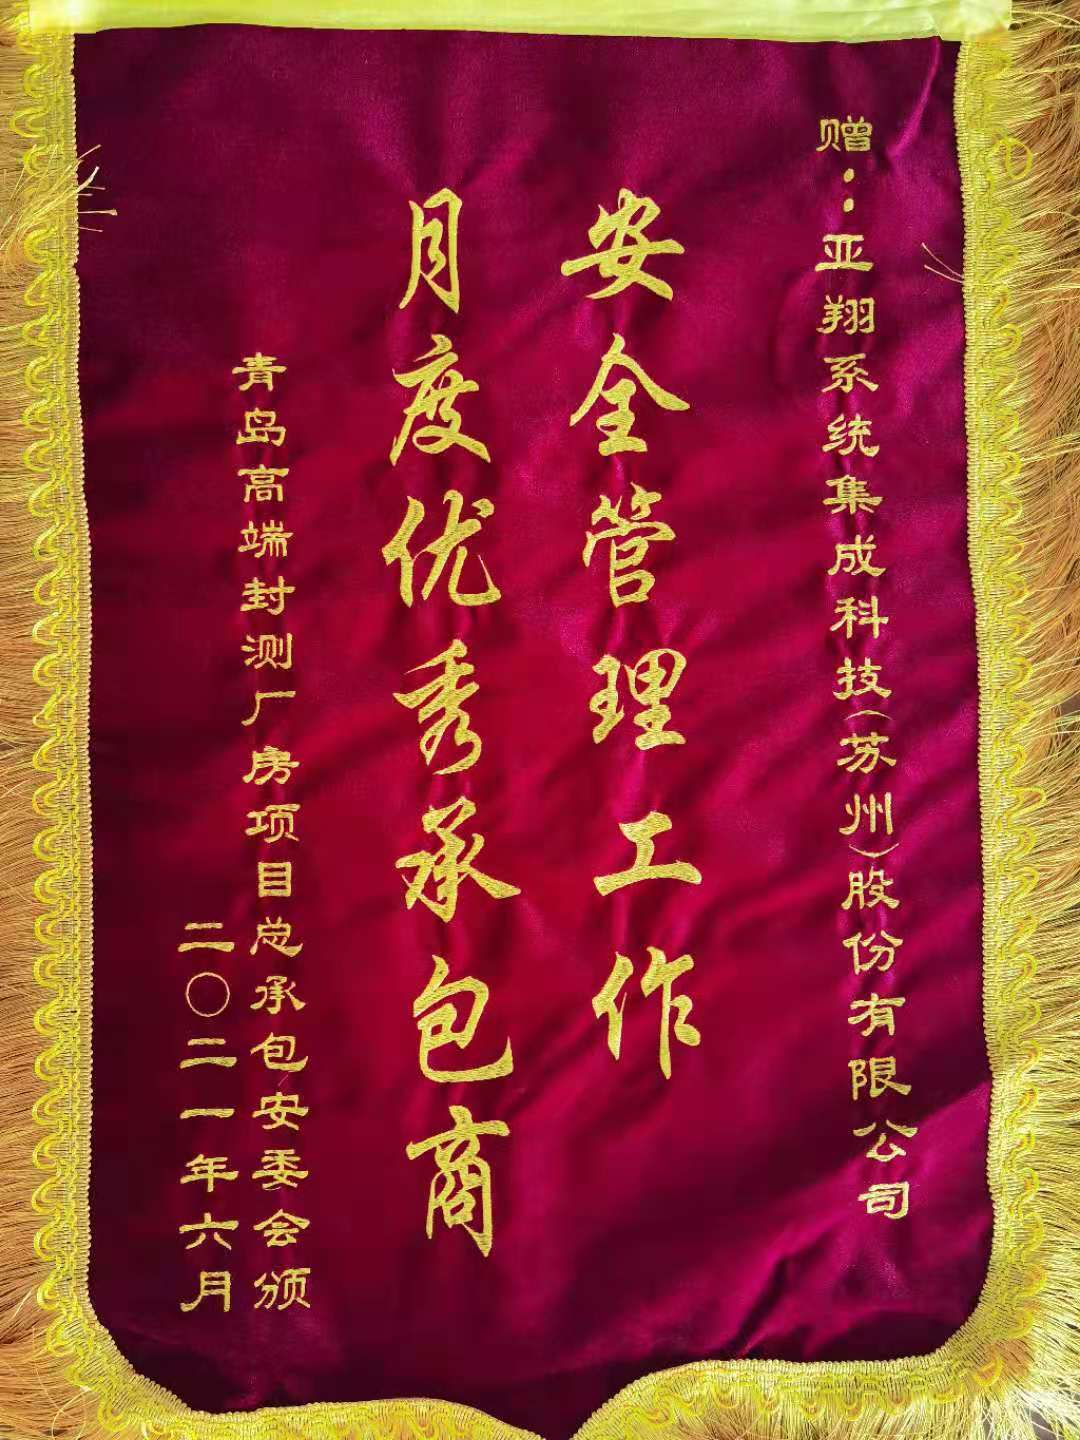 赠：亚翔系统集成科技（苏州）股份有限公司
安全管理工作
月度优秀承包商
青岛高端封测厂房项目总承包安委会颁
二〇二一年六月